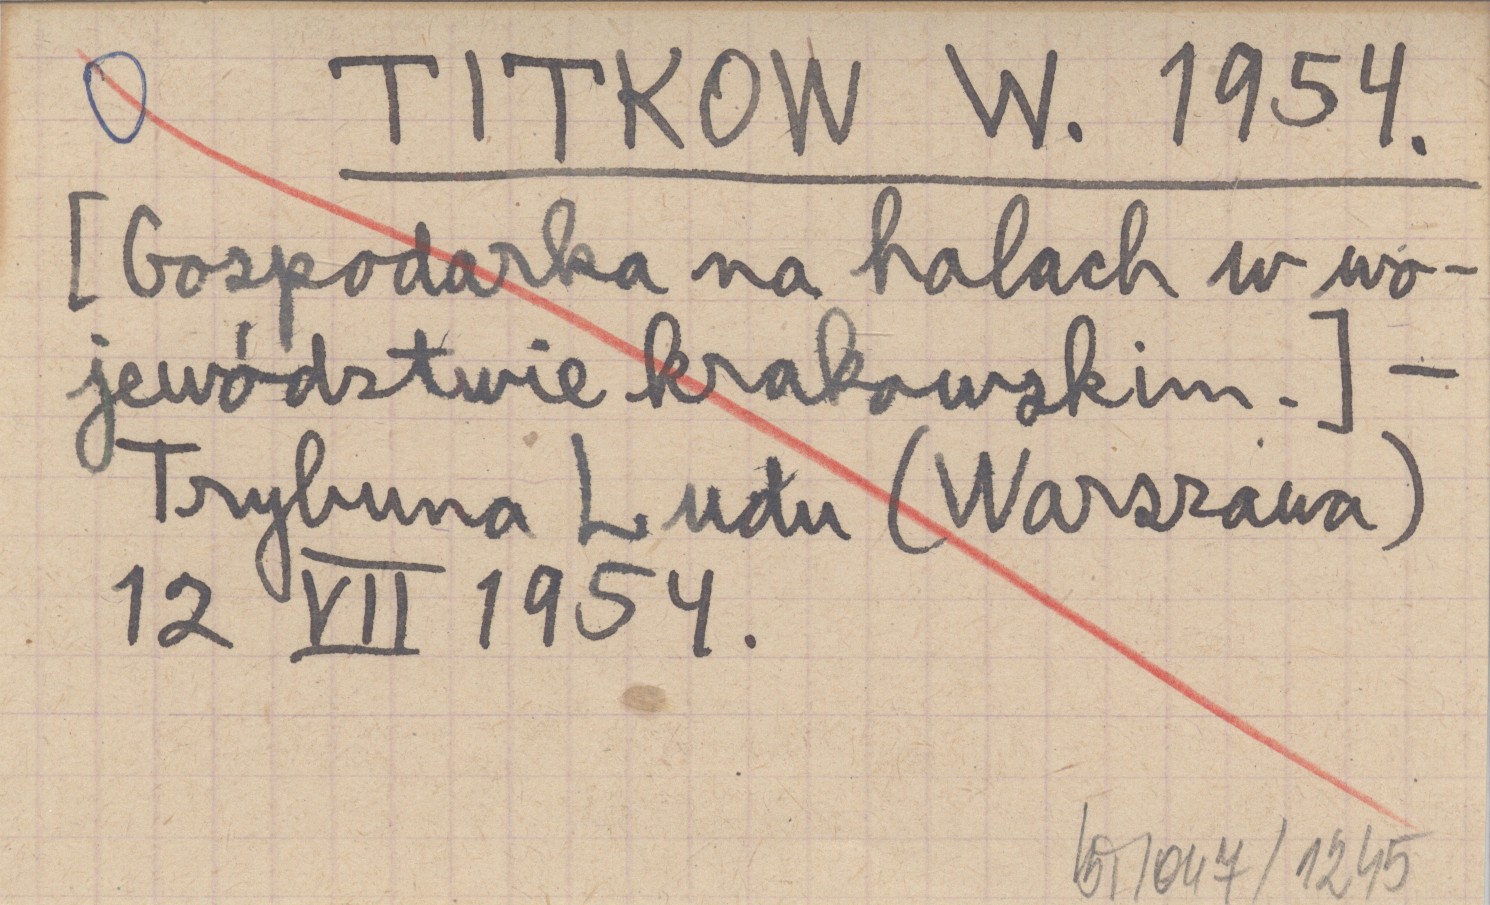 O TITKOW W. 1954.
[Gospodarka na halach w wo-
jewództwie krakowskim.] —
Trybuna Ludu (Warszawa)
12 VII 1954.
/047/1245